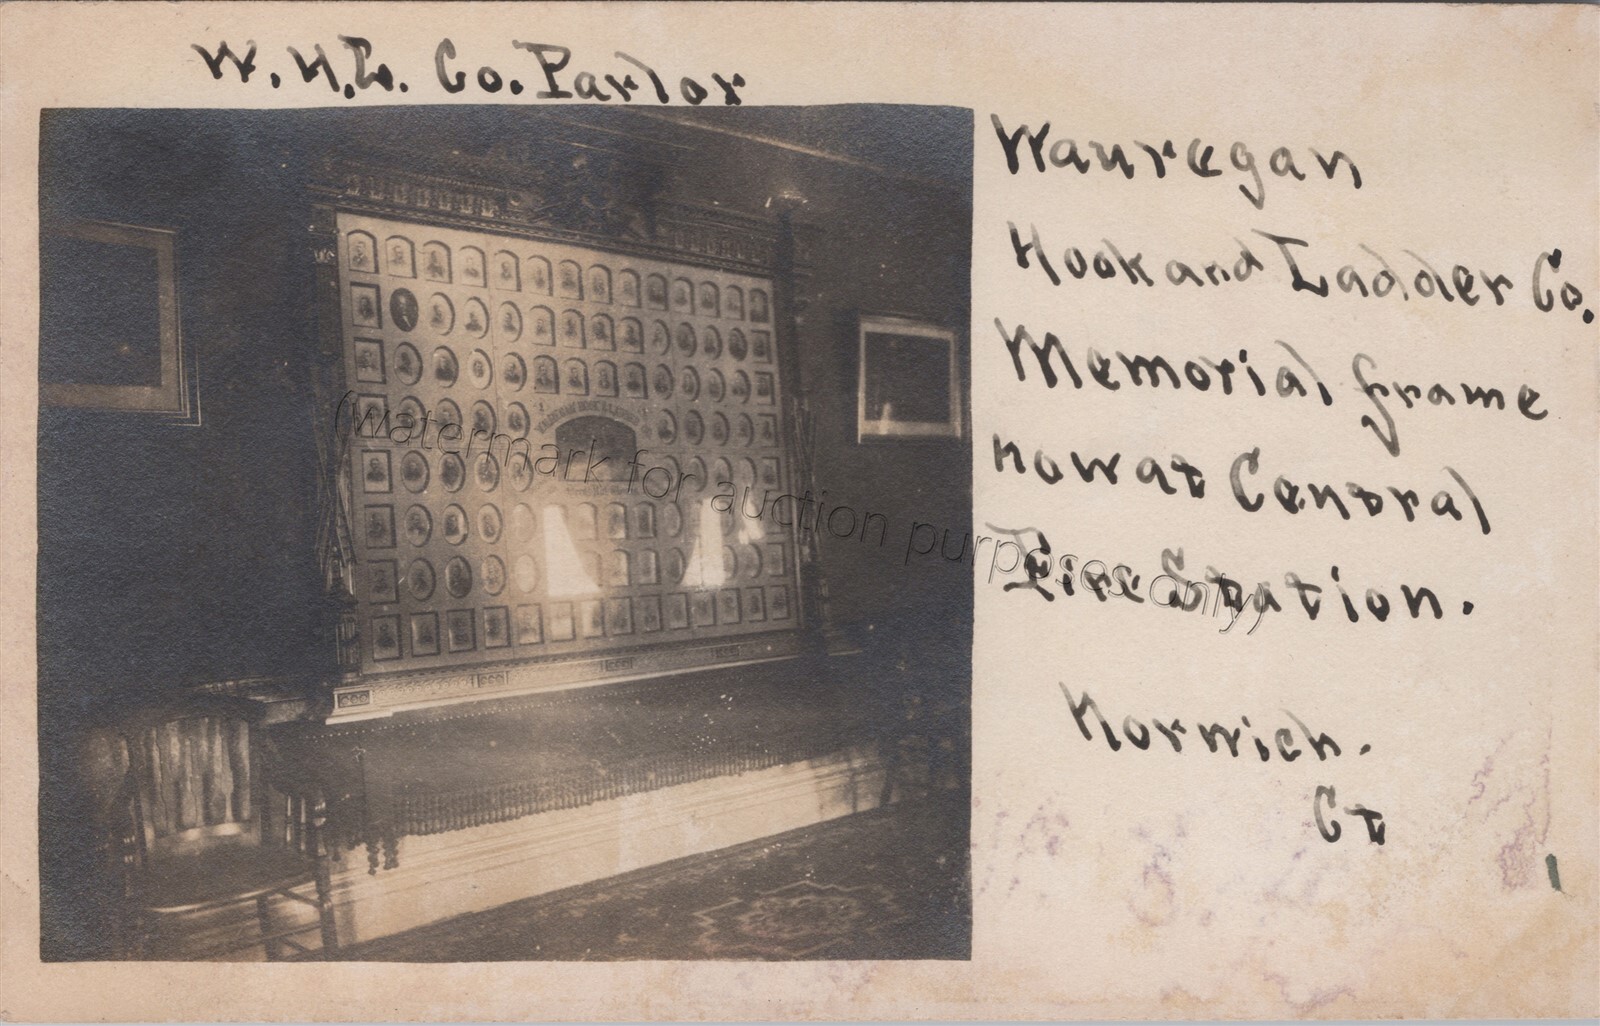 W.H.L. Co. Parlor
Wauregan
Hook and Ladder Co.
Memorial frame
now at Central
Fire Station.
Norwich.
Ct
WAUREGAN HOOK & LADDER
(watermark for auction purposes only)